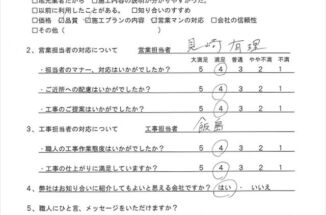 □地元業者だから □施工内容の説明が分かりやすかった。
□以前に利用したことがある。 □知り合いのすすめ
□価格 □品質 □施工プランの内容 □営業マンの対応 □会社の信頼性
□その他（ ）
2、営業担当者の対応について 営業担当者 見崎 有理
大満足 満足 普通 やや不満 不満
・担当者のマナー、対応はいかがでしたか？ 5 4 3 2 1
・ご近所への配慮はいかがでしたか？ 5 4 3 2 1
・工事のご提案はいかがでしたか？ 5 4 3 2 1
3、工事担当者の対応について 工事担当者 飯島
・職人の工事作業態度はいかがでしたか？ 5 4 3 2 1
・工事の仕上がりに満足していますか？ 5 4 3 2 1
4、弊社はお知り合いに紹介してもよいと思える会社ですか？ はい ・ いいえ
5、職人にひと言、メッセージをいただけますか？